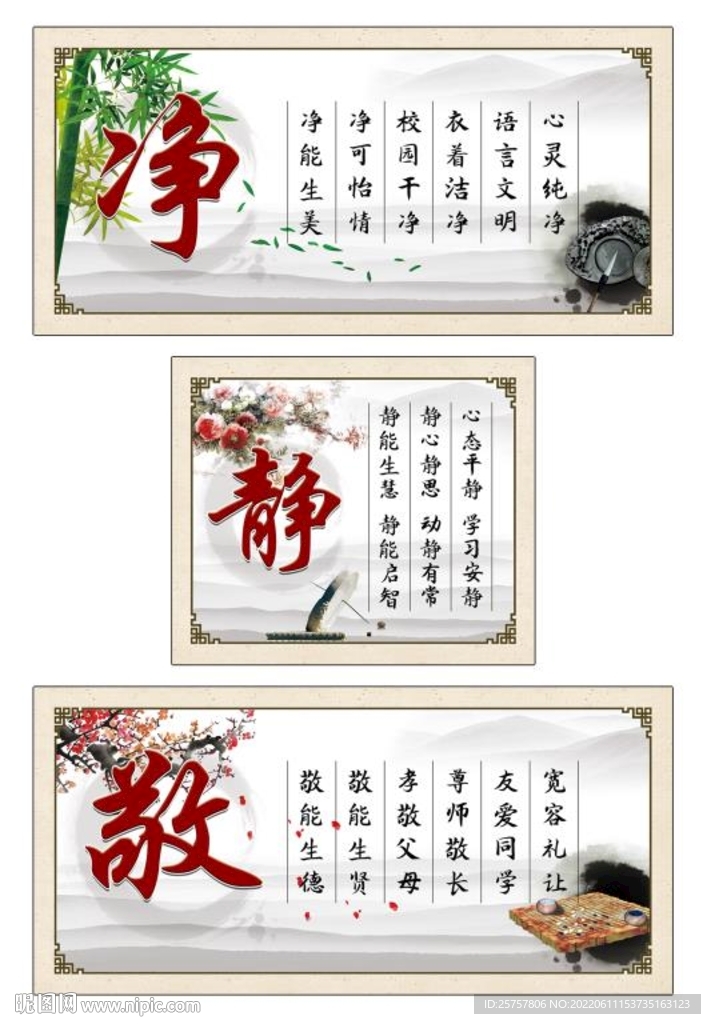 净
净能生美
净可怡情
校园干净
衣着洁净
语言文明
心灵纯净
静
静能生慧 静能启智
静心静思 动静有常
心态平静 学习安静
敬
敬能生德
敬能生贤
孝敬父母
尊师敬长
友爱同学
宽容礼让
昵图网 www.nipic.com
ID:25757806 NO:20220611153735163123